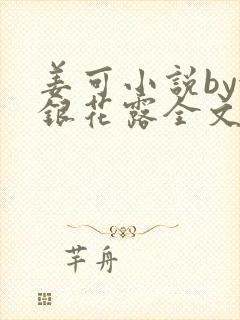 姜可小説by
銀花露全文
芊舟